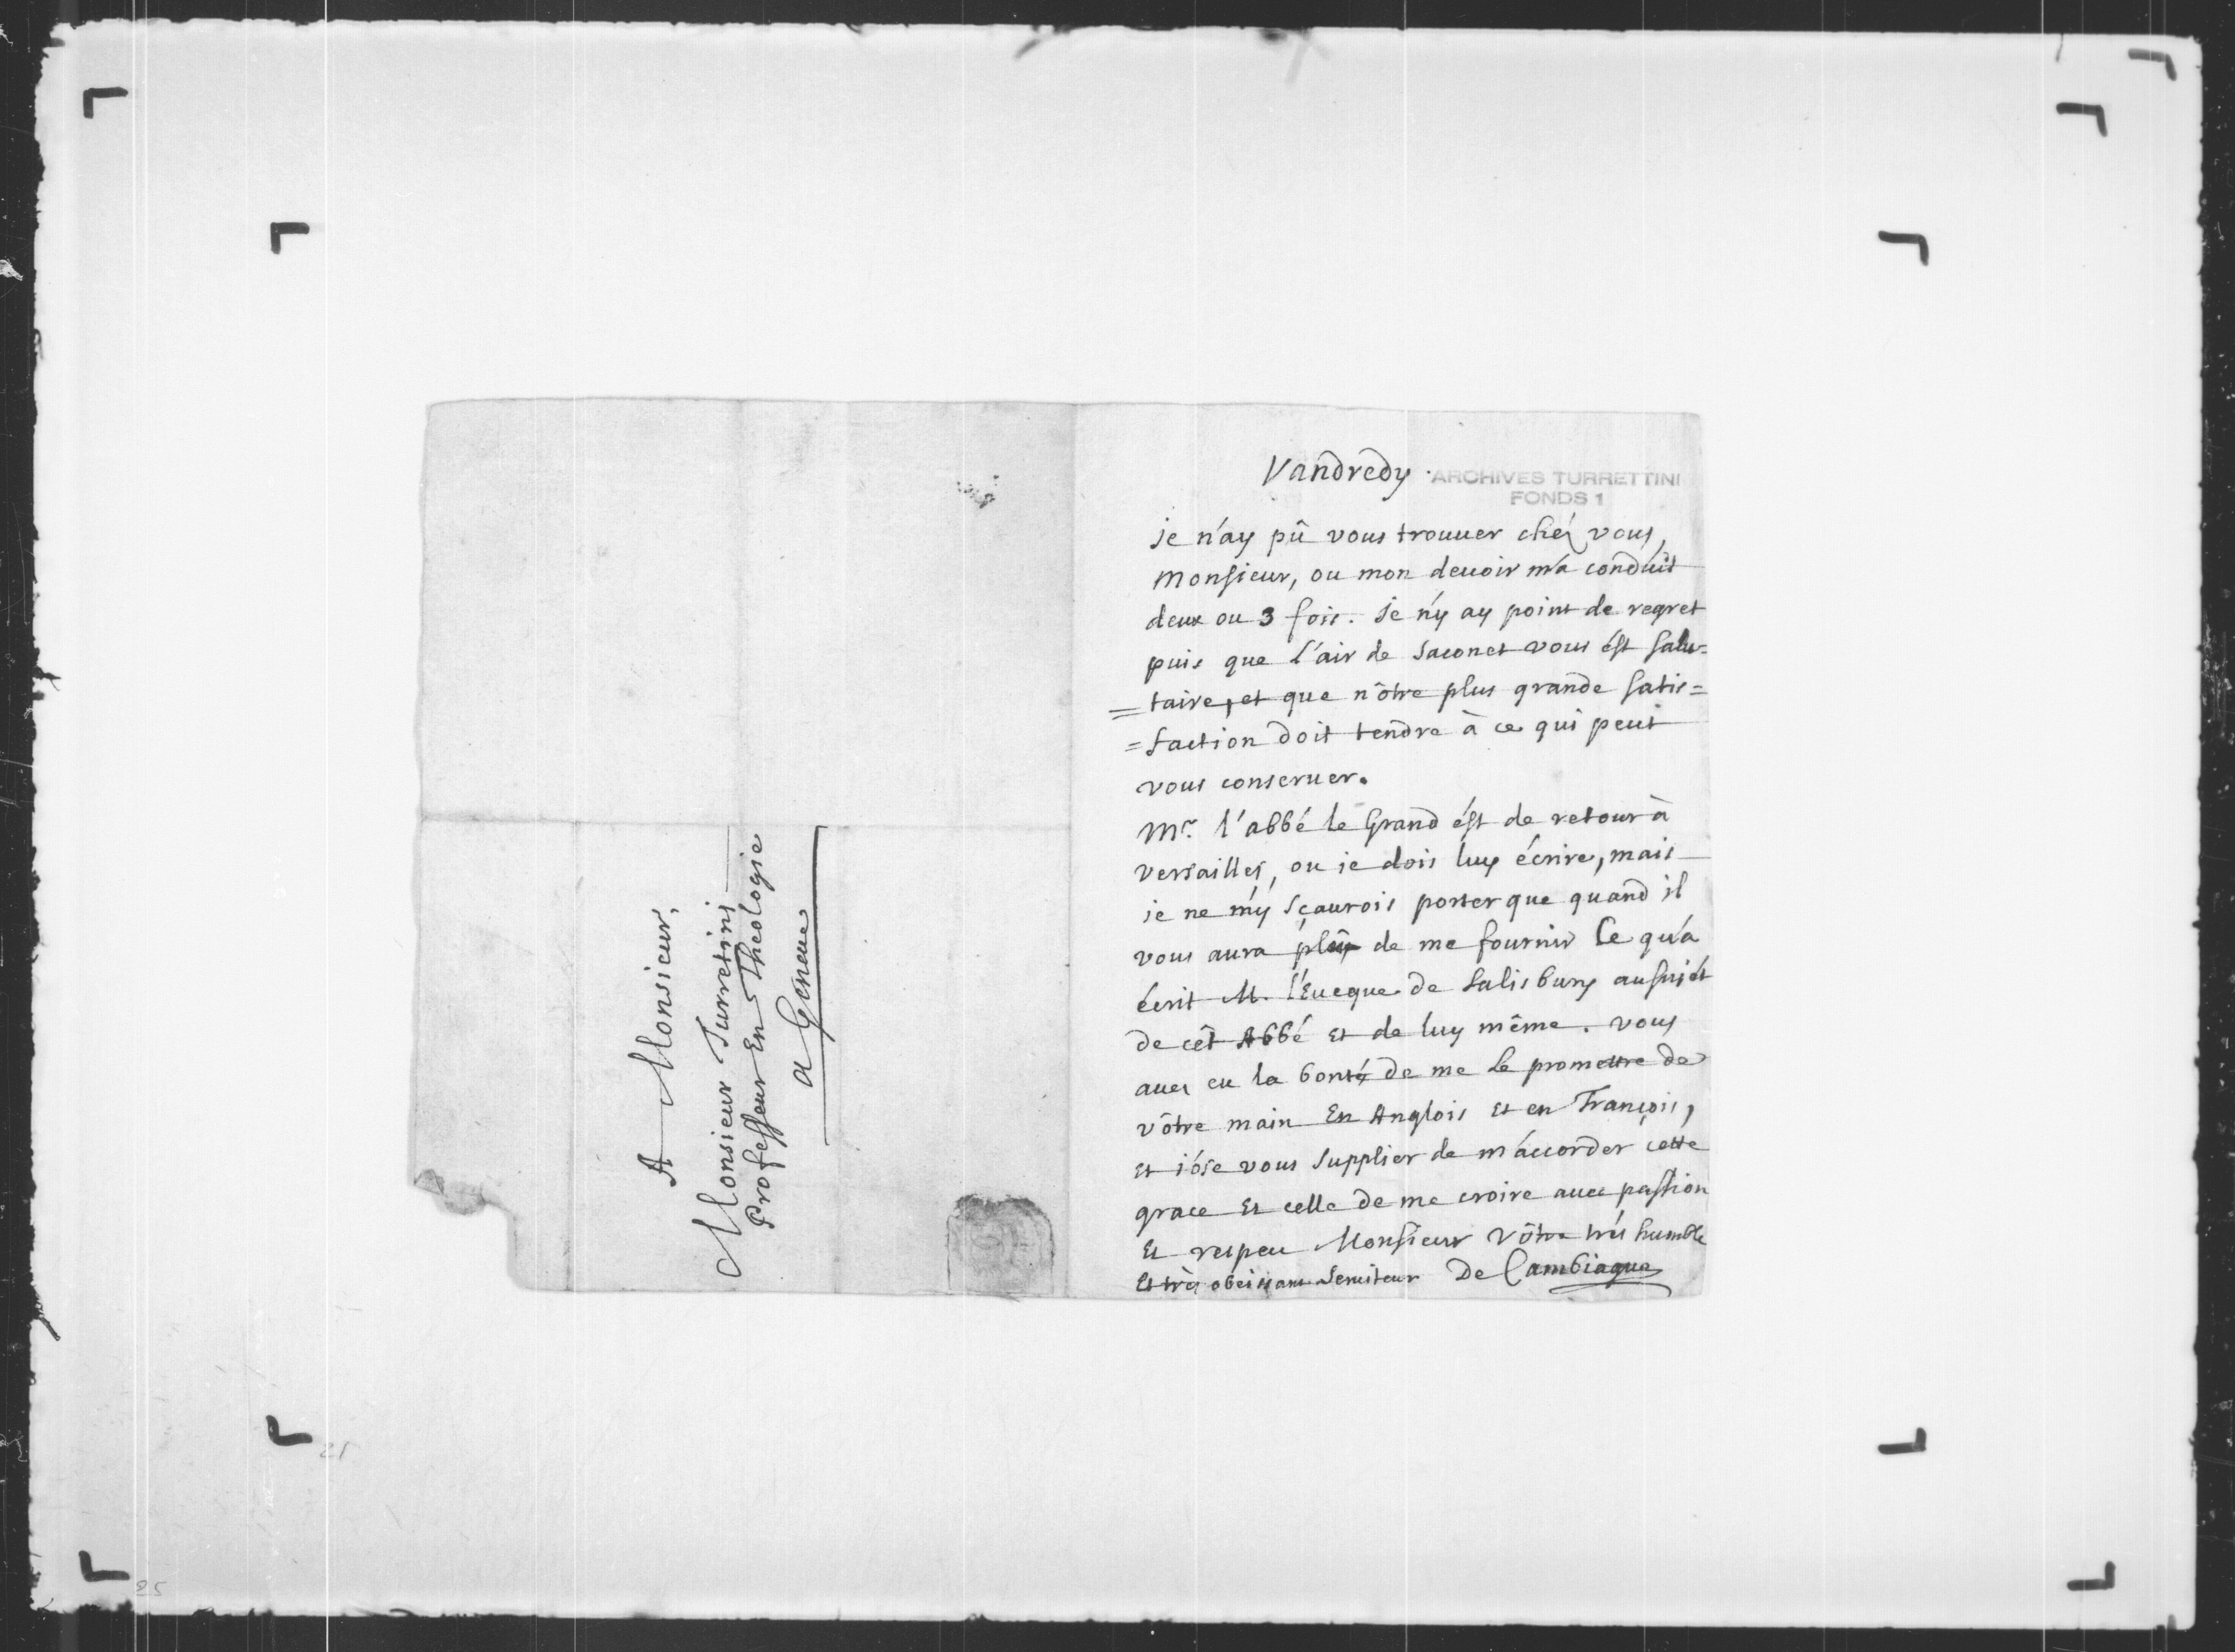 A Monsieur,
Monsieur Turretini
Professeur En Theologie
a Geneue
Vandredy.
ARCHIVES TURRETTINI
FONDS 1
je n'ay pû vous trouuer chéz vous,
Monsieur, ou mon deuoir m'a conduit
deux ou 3 fois. Je n'y ay point de regret
puis que l'air de Saconet vous ést salu=
=taire, et que nôtre plus grande satis=
=faction doit tendre à ce qui peut
vous conseruer.
Mr. l'abbé le Grand ést de retour à
versailles, ou ie dois luy écrire, mais
ie ne m'y sçaurois porter que quand il
vous aura plû de me fournir Ce qu'a
écrit M. l'Eueque de Salisbury au sujét
de cêt Abbé Et de luy même. vous
auez eu la bonté de me le promettre de
vôtre main En Anglois Et en François,
Et i'óse vous supplier de m'accorder cette
grace Et celle de me croire auec passion
Et respeu Monsieur Vôtre trés humble
Et très obeissant Seruiteur De Cambiague
25